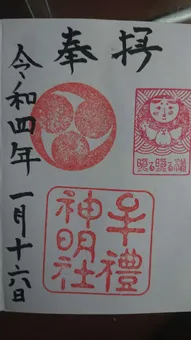 奉拝
牟禮
神明社
令和四年一月十六日